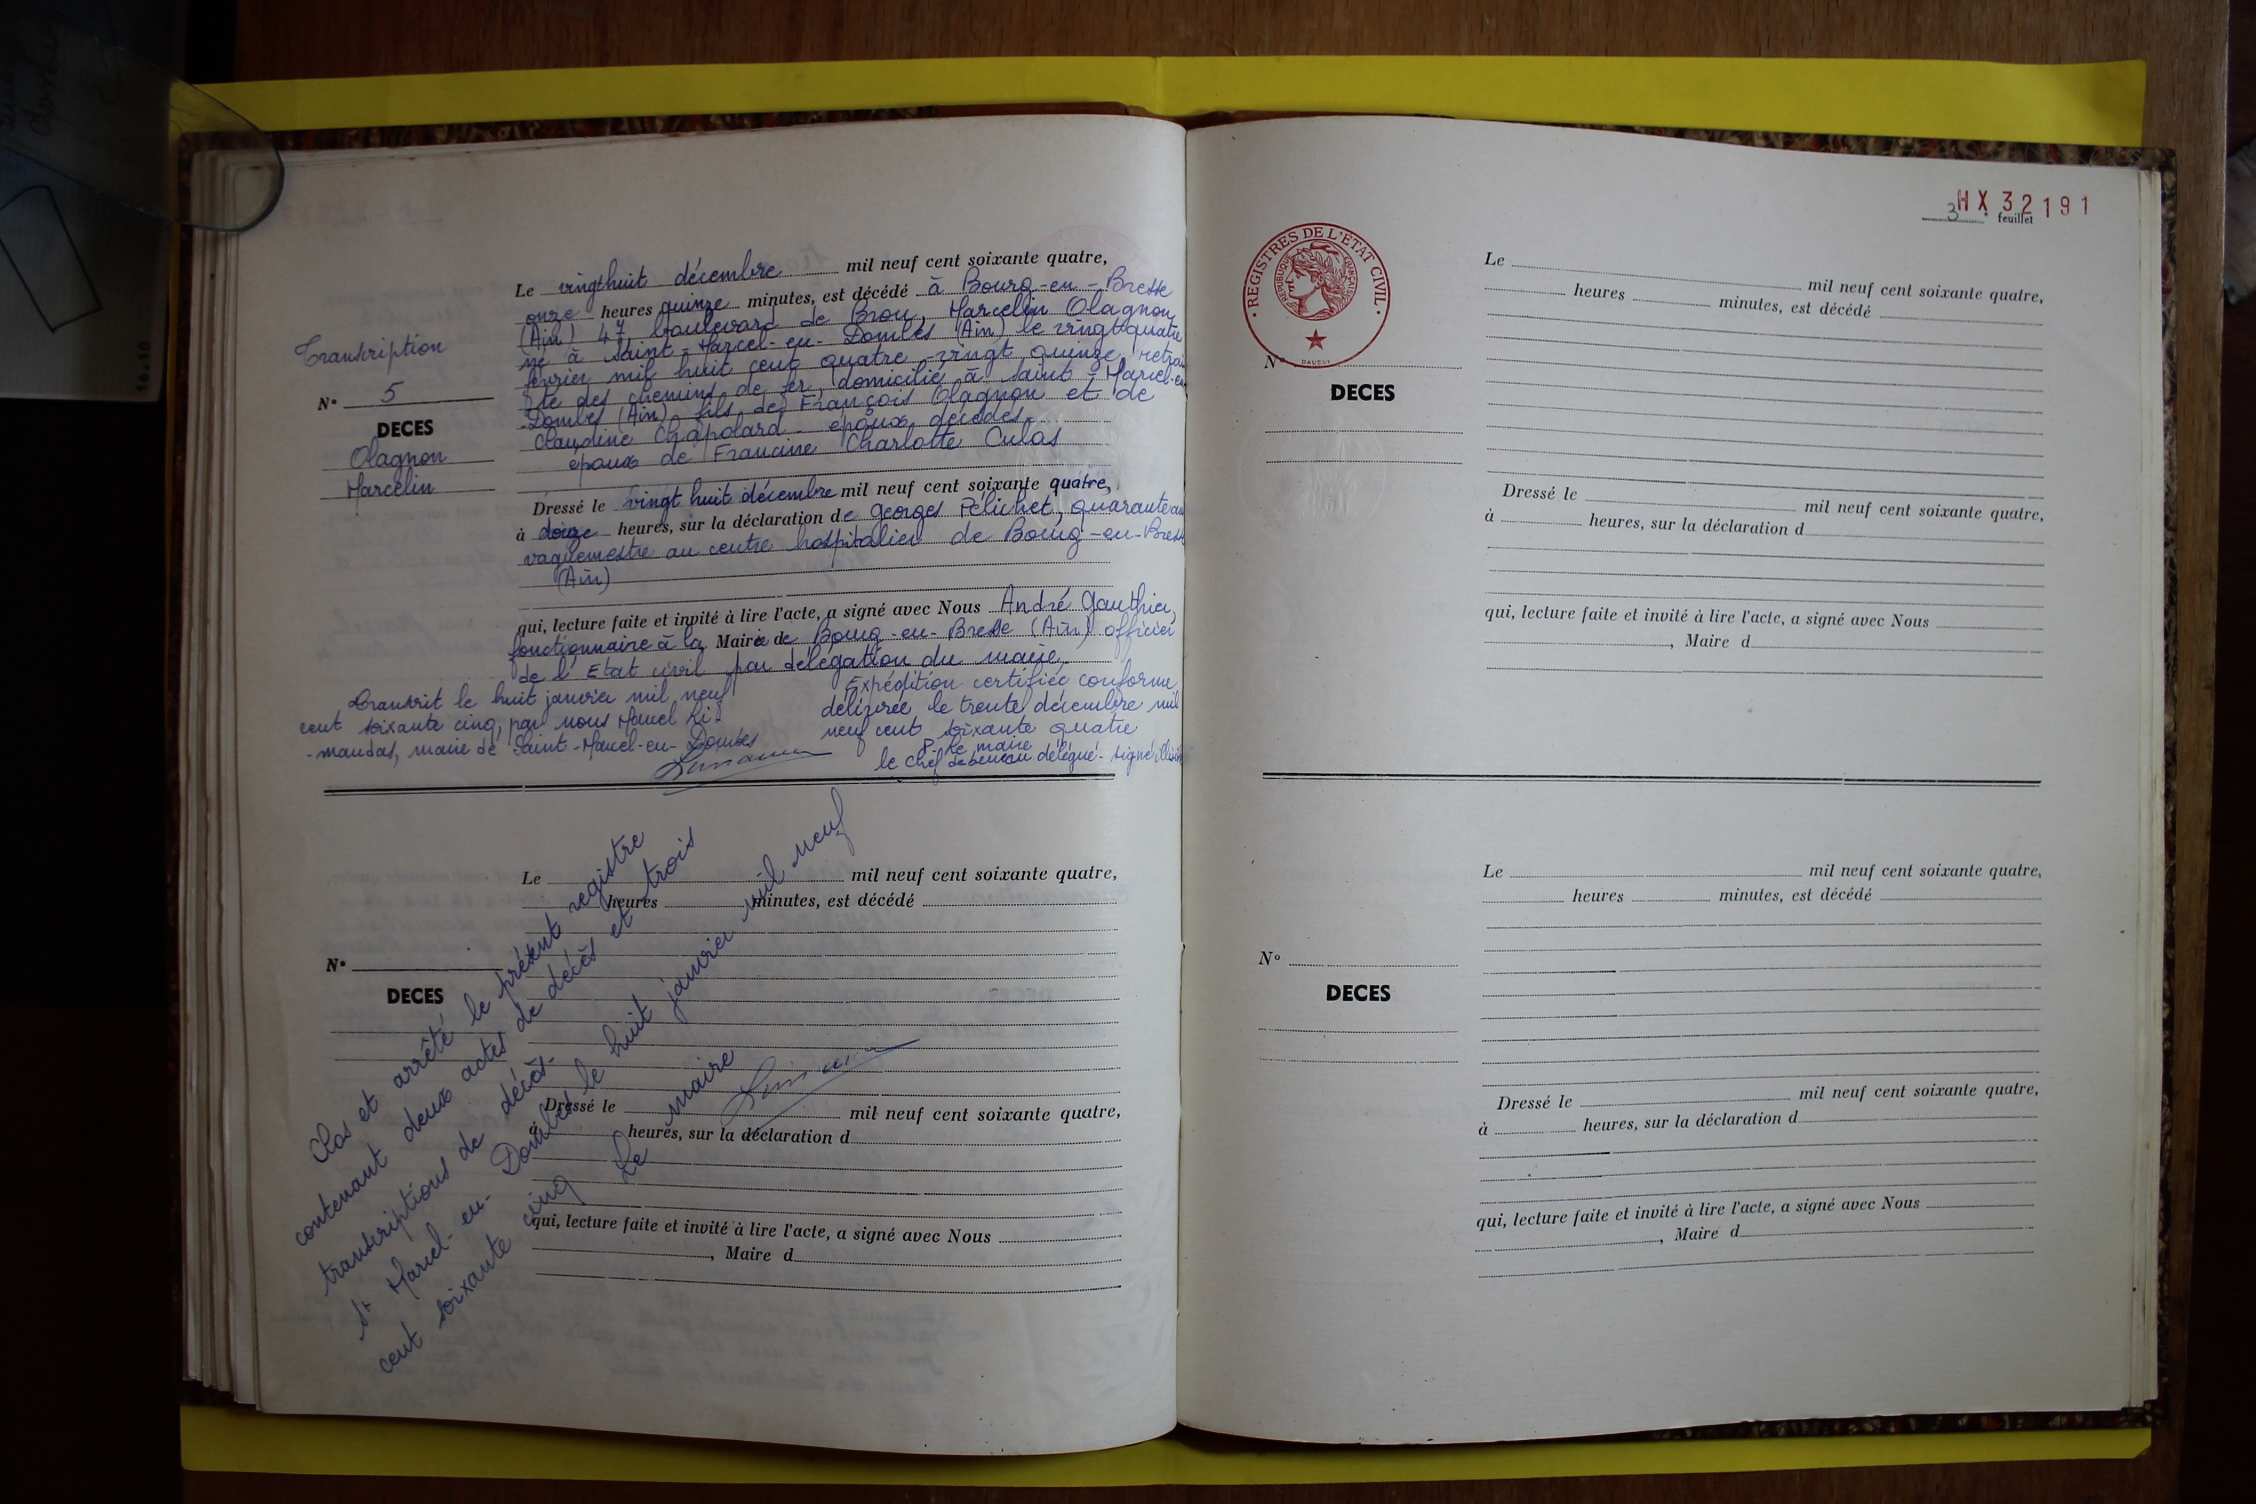 Transcription
N° 5
DECES
Olagnon
Marcelin
Le vingt huit décembre mil neuf cent soixante quatre,
onze heures quinze minutes, est décédé à Bourg-en-Bresse
(Ain) 47 boulevard de Brou, Marcelin Olagnon
né à Saint-Marcel-en-Dombes (Ain) le vingt quatre
février mil huit cent quatre-vingt quinze retrai
té des chemins de fer, domicilié à Saint-Marcel-en
-Dombes (Ain), fils de François Olagnon et de
Claudine Chapolard - époux décédés.
époux de Francine Charlotte Culas
Dressé le vingt huit décembre mil neuf cent soixante quatre,
à heures, sur la déclaration de Georges Pélichet, quarante ans
vaguemestre au centre hospitalier de Bourg-en-Bresse
(Ain)
qui, lecture faite et invité à lire l'acte, a signé avec Nous André Gauthier,
fonctionnaire à la Mairie de Bourg-en-Bresse (Ain) officier
de l'Etat civil par délégation du maire.
Transcrit le huit janvier mil neuf
cent soixante cinq, par nous Marcel Li-
-mandas, maire de Saint-Marcel-en-Dombes
Expédition certifiée conforme
délivrée le trente décembre mil
neuf cent soixante quatre
P. le maire
le chef de bureau délégué - signé
Le mil neuf cent soixante quatre,
heures minutes, est décédé
N°
DECES
Dressé le mil neuf cent soixante quatre,
à heures, sur la déclaration d
qui, lecture faite et invité à lire l'acte, a signé avec Nous
, Maire d
Clos et arrêté le présent registre
contenant deux actes de décès et trois
transcriptions de décès-
St Marcel-en-Dombes le huit janvier mil neuf
cent soixante cinq Le maire
HX 32191
3 feuillet
REGISTRES DE L'ETAT CIVIL
REPUBLIQUE FRANÇAISE
N°
DECES
Le mil neuf cent soixante quatre,
heures minutes, est décédé
Dressé le mil neuf cent soixante quatre,
à heures, sur la déclaration d
qui, lecture faite et invité à lire l'acte, a signé avec Nous
, Maire d
Le mil neuf cent soixante quatre,
heures minutes, est décédé
N°
DECES
Dressé le mil neuf cent soixante quatre,
à heures, sur la déclaration d
qui, lecture faite et invité à lire l'acte, a signé avec Nous
, Maire d